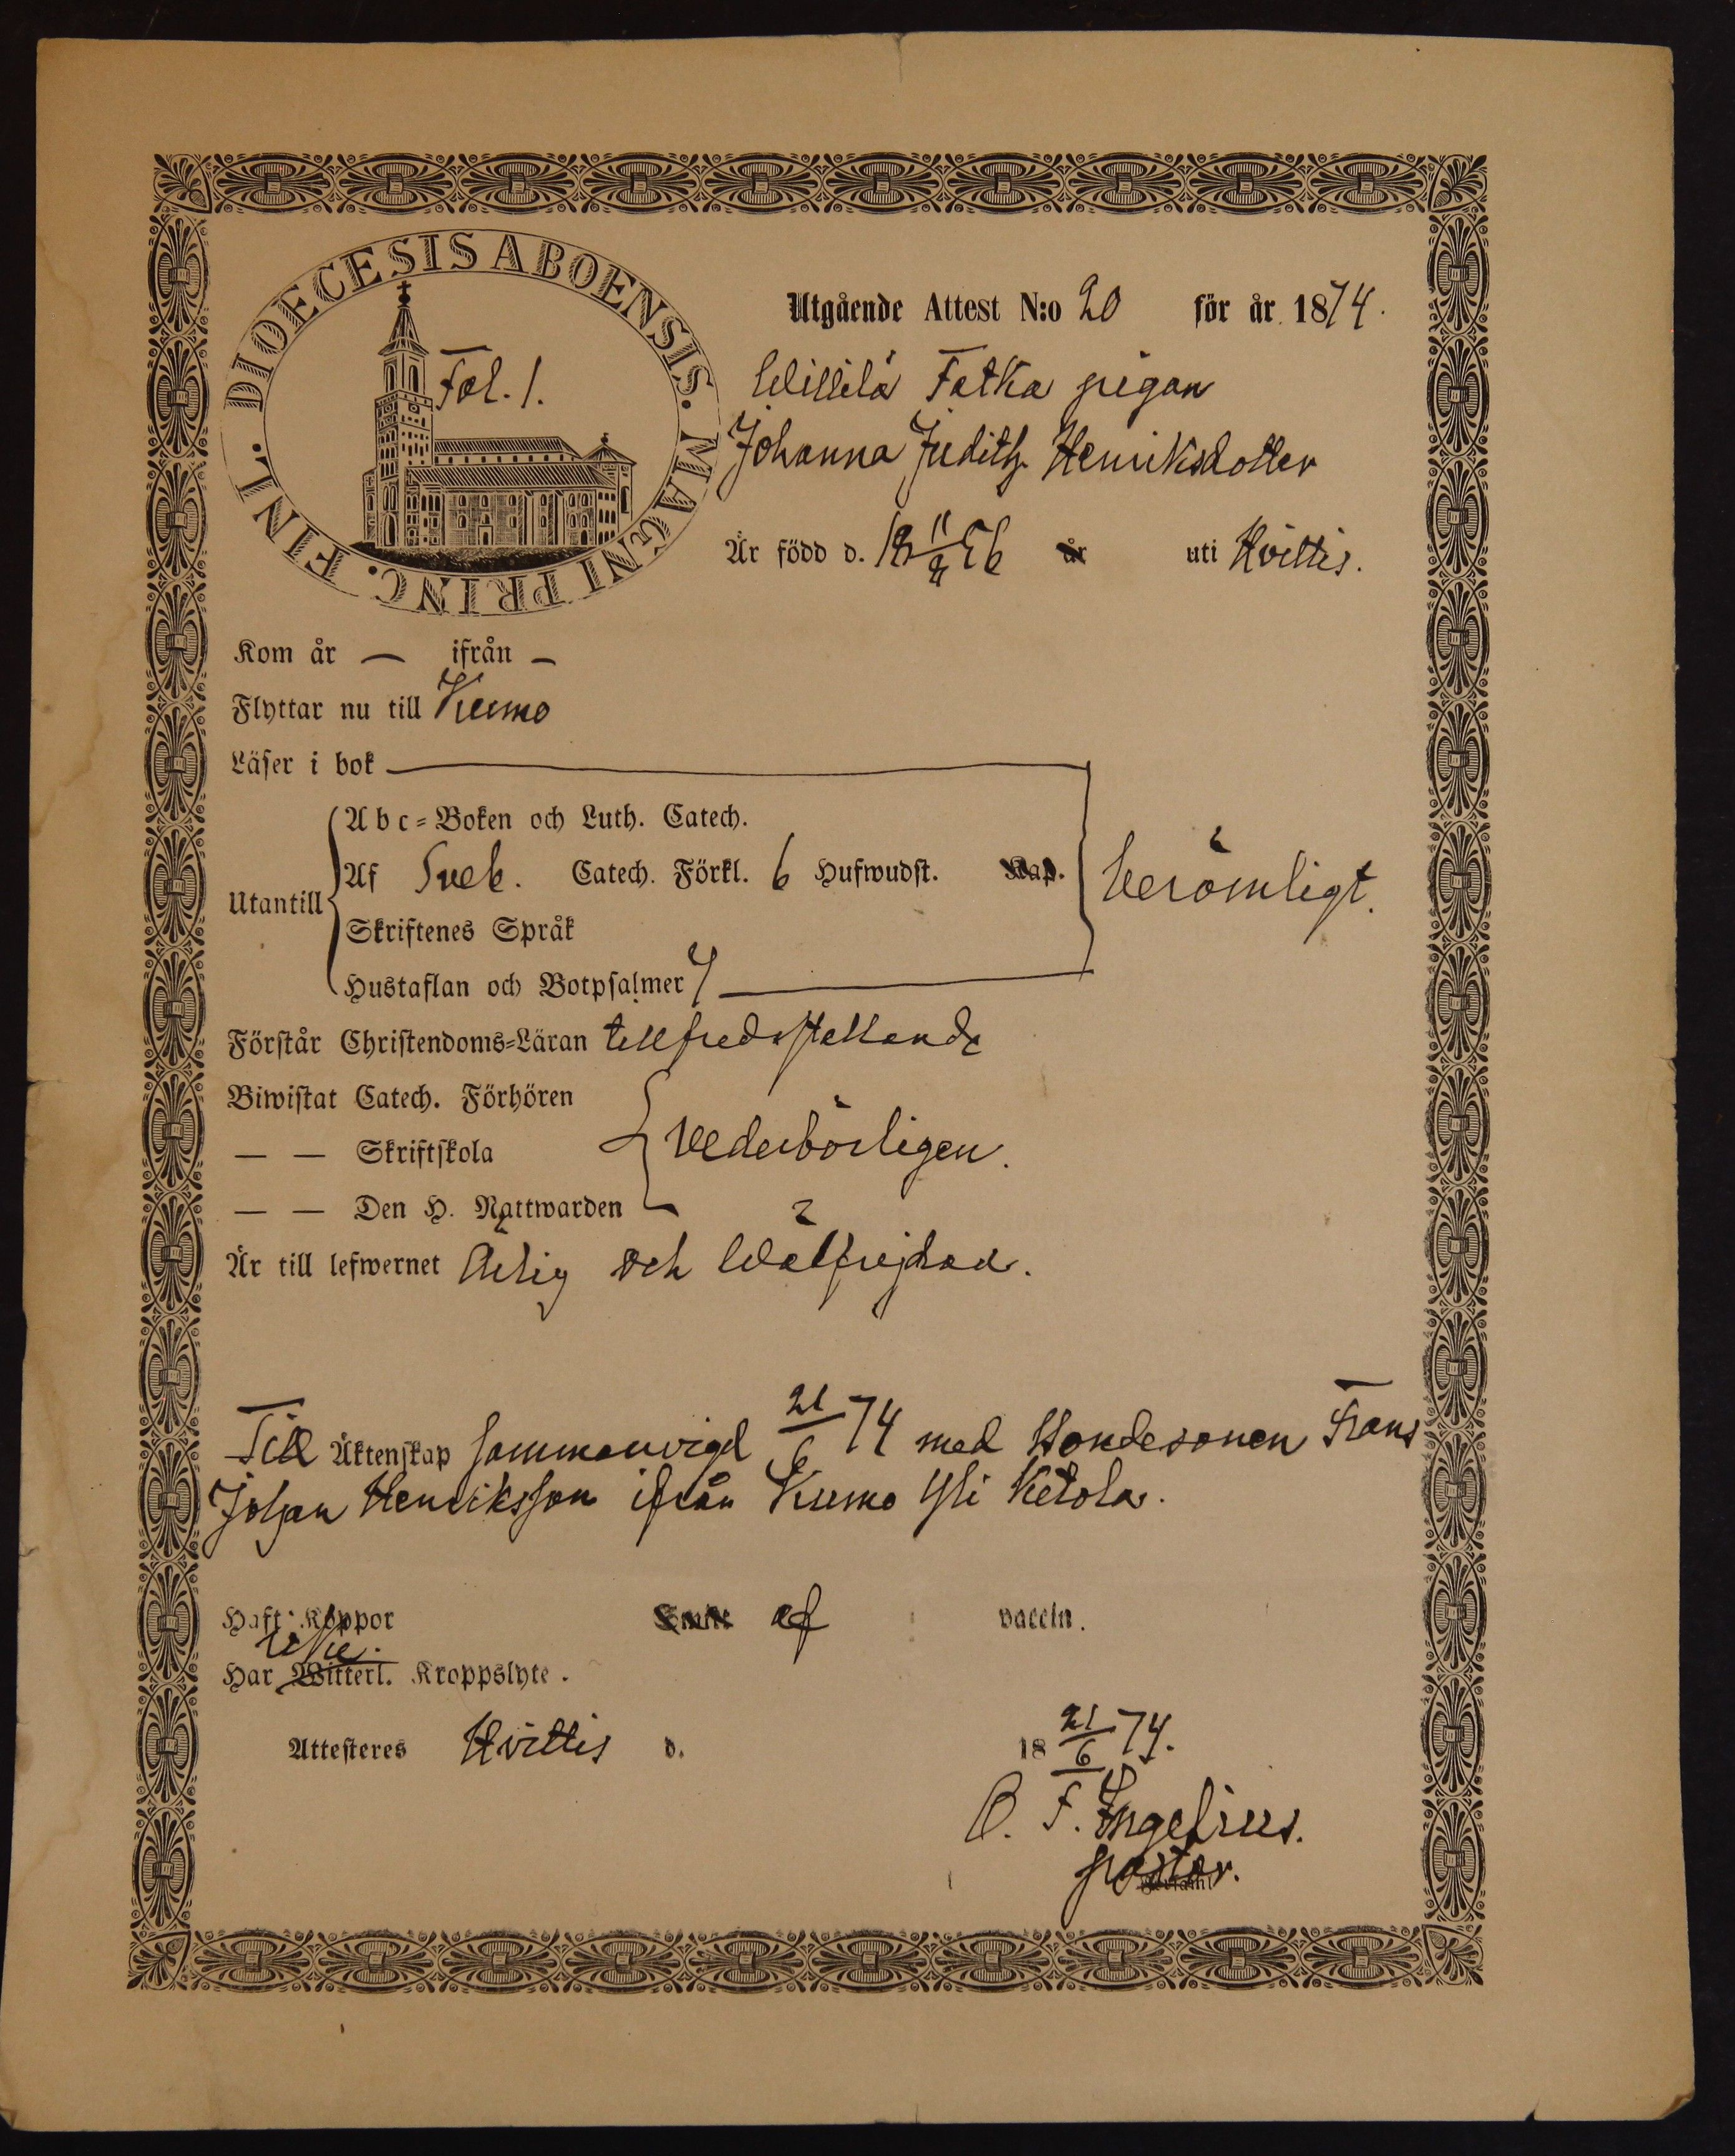 DIOECESIS ABOENSIS. MAGNI PRINC. FINL.
Fol. 1.
Utgående Attest N:o 20 för år 1874.
Willilä Fatka pigan
Johanna Judith Henriksdotter
Är född d. 18 11/9 56 år uti Hvittis.
Kom år — ifrån —
Flyttar nu till Kumo
Läser i bok
Utantill
Abc-Boken och Luth. Catech.
Af Sveb. Catech. Förkl. 6 Hufwudst. Kap.
Berömligt.
Skriftenes Språk
Hustaflan och Botpsalmer 7
Förstår Christendoms-Läran tillfredsställande
Biwistat Catech. Förhören
— — Skriftskola
vederbörligen.
— — Den H. Nattwarden
Är till lefwernet Ärlig och Wälfrejdad.
Till Äktenskap sammanvigd 21/6 74 med Bondesonen Frans
Johan Henriksson ifrån Kumo Yli Ketola.
Haft Koppor af vaccin.
icke
Har Witterl. Kroppslyte.
Attesteres Hvittis d. 18 21/6 74.
O. F. Ingelius.
pastor.